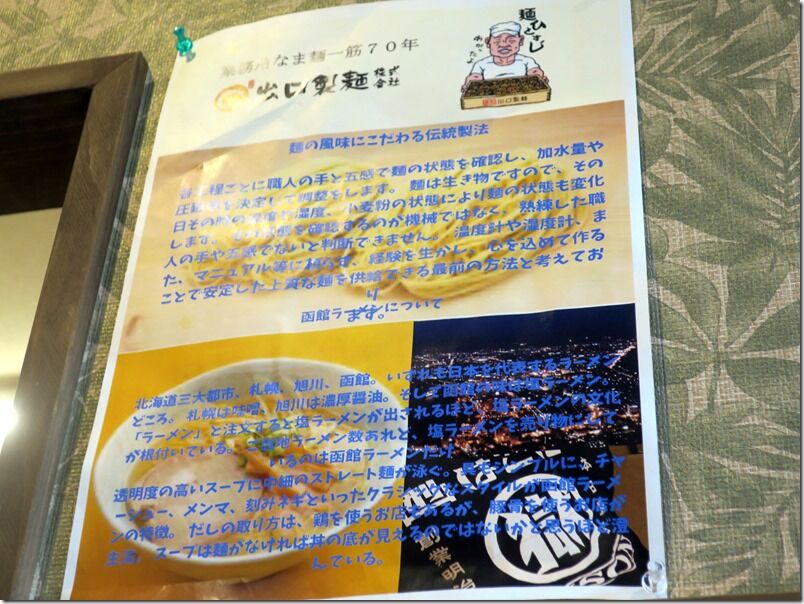 業務用なま麺一筋70年
出口製麺
株式
会社
麺ひとすじ
出口製麺
麺の風味にこだわる伝統製法
各工程ごとに職人の手と五感で麺の状態を確認し、加水量や
圧延等を決定して調整をします。 麺は生き物ですので、その
日その時の温度や湿度、小麦粉の状態により麺の状態も変化
します。 その状態を確認するのが機械ではなく、熟練した職
人の手や五感でないと判断できません。 温度計や湿度計、ま
た、マニュアル等に頼らず、経験を生かし、心を込めて作る
ことで安定した上質な麺を供給できる最前の方法と考えてお
り
ます。
函館ラーメンについて
北海道三大都市、札幌、旭川、函館。いずれも日本を代表するラーメン
どころ。 札幌は味噌、旭川は濃厚醤油。そして函館の味は塩ラーメン。
「ラーメン」と注文すると塩ラーメンが出されるほど、塩ラーメンの文化
が根付いている。ご当地ラーメン数あれど、塩ラーメンを売り物にして
いるのは函館ラーメンだけ
透明度の高いスープに中細のストレート麺が泳ぐ。具もシンプルに、チャ
ーシュー、メンマ、刻みネギといったクラシックなスタイルが函館ラーメ
ンの特徴。 だしの取り方は、鶏を使うお店もあるが、豚骨を使うお店が
主流。スープは麺がなければ丼の底が見えるのではないかと思うほど澄
んでいる。
創業明治